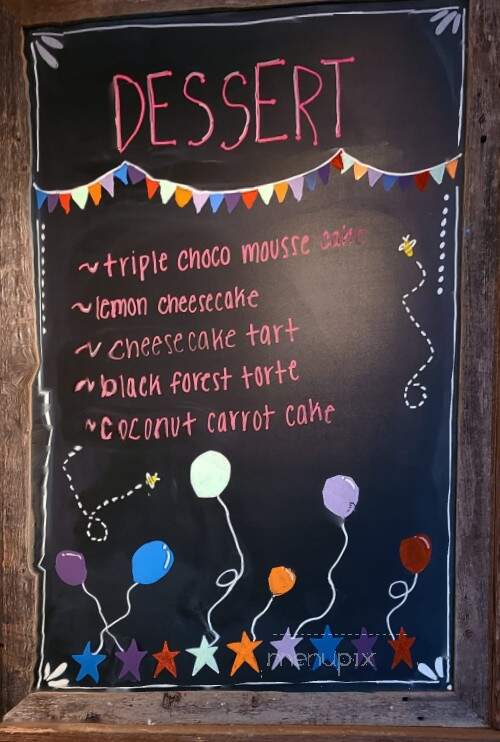 DESSERT
~triple choco mousse cake
~lemon cheesecake
~cheesecake tart
~black forest torte
~coconut carrot cake
menupix